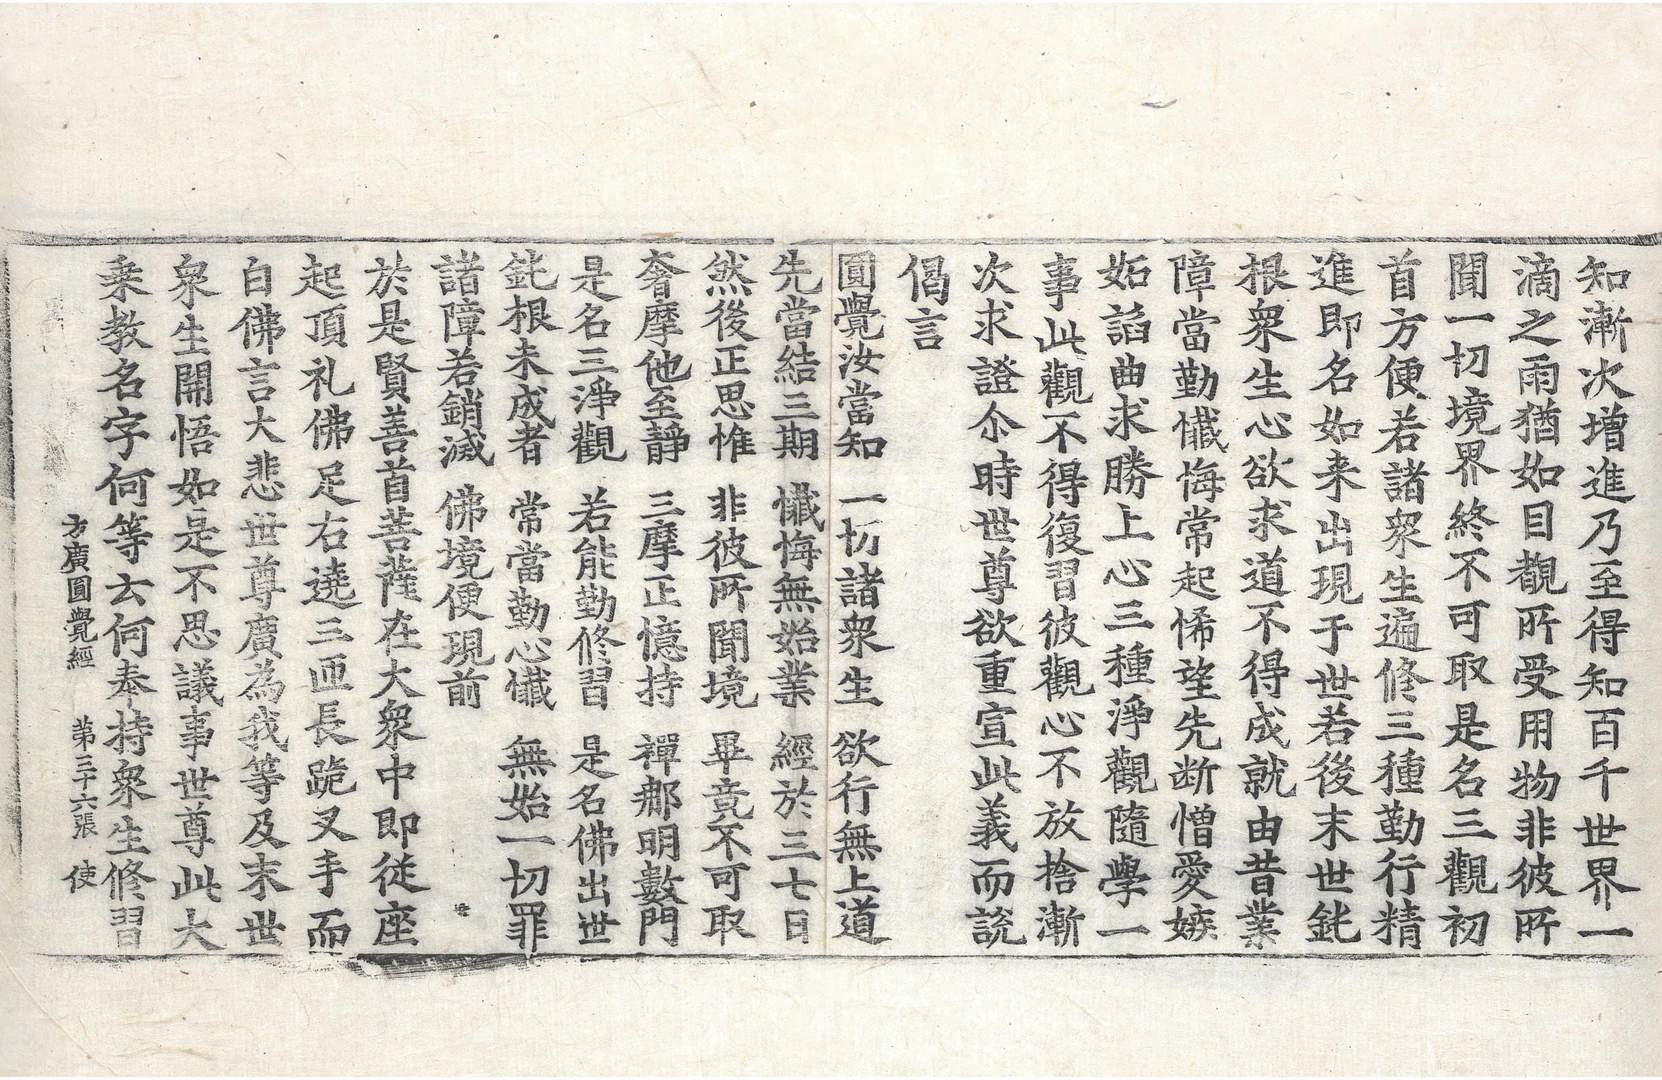 知漸次增進乃至得知百千世界一
滴之雨猶如目覩所受用物非彼所
聞一切境界終不可取是名三觀初
首方便若諸衆生遍修三種勤行精
進即名如来出現于世若後末世鈍
根衆生心欲求道不得成就由昔業
障當勤懺悔常起悕望先断憎愛嫉
妬諂曲求勝上心三種淨觀隨學一
事此觀不得復習彼觀心不放捨漸
次求證尒時世尊欲重宣此義而說
偈言
圓覺汝當知 一切諸衆生 欲行無上道
先當結三期 懺悔無始業 經於三七日
然後正思惟 非彼所聞境 畢竟不可取
奢摩他至靜 三摩正憶持 禪那明數門
是名三淨觀 若能勤修習 是名佛出世
鈍根未成者 常當勤心懺 無始一切罪
諸障若銷滅 佛境便現前
於是賢善首菩薩在大衆中即從座
起頂礼佛足右遶三匝長跪叉手而
白佛言大悲世尊廣為我等及末世
衆生開悟如是不思議事世尊此大
乗教名字何等云何奉持衆生修習
方廣圓覺經 第三十六張 使